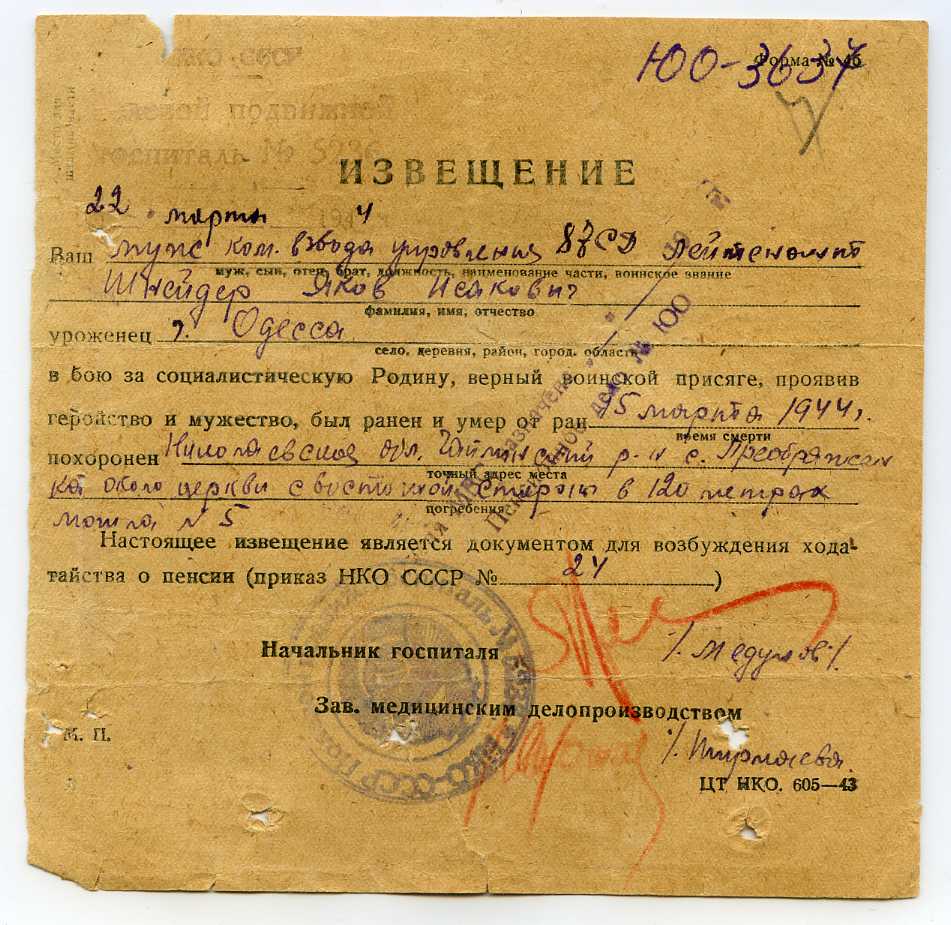 НКО СССР
Форма № 16
ЮО-3637
подвижной
госпиталь № 5236
ИЗВЕЩЕНИЕ
22 марта 1944
Ваш муж ком. взвода управления СД Лейтенант
муж, сын, отец, брат, должность, наименование части, воинское звание
Шнейдер Яков Исакович
фамилия, имя, отчество
уроженец г. Одесса
село, деревня, район, город, область
в бою за социалистическую Родину, верный воинской присяге, проявив
геройство и мужество, был ранен и умер от ран 15 марта 1944 г.
время смерти
похоронен Николаевская обл. р-н с. Преображен
точный адрес места
ка около церкви с восточной стороны в 120 метрах
погребения
могила № 5
Настоящее извещение является документом для возбуждения хода-
тайства о пенсии (приказ НКО СССР № 24)
Начальник госпиталя
/. Медумов /.
Зав. медицинским делопроизводством
М. П.
ЦТ НКО. 605—43
Пенсионное дело № ЮО